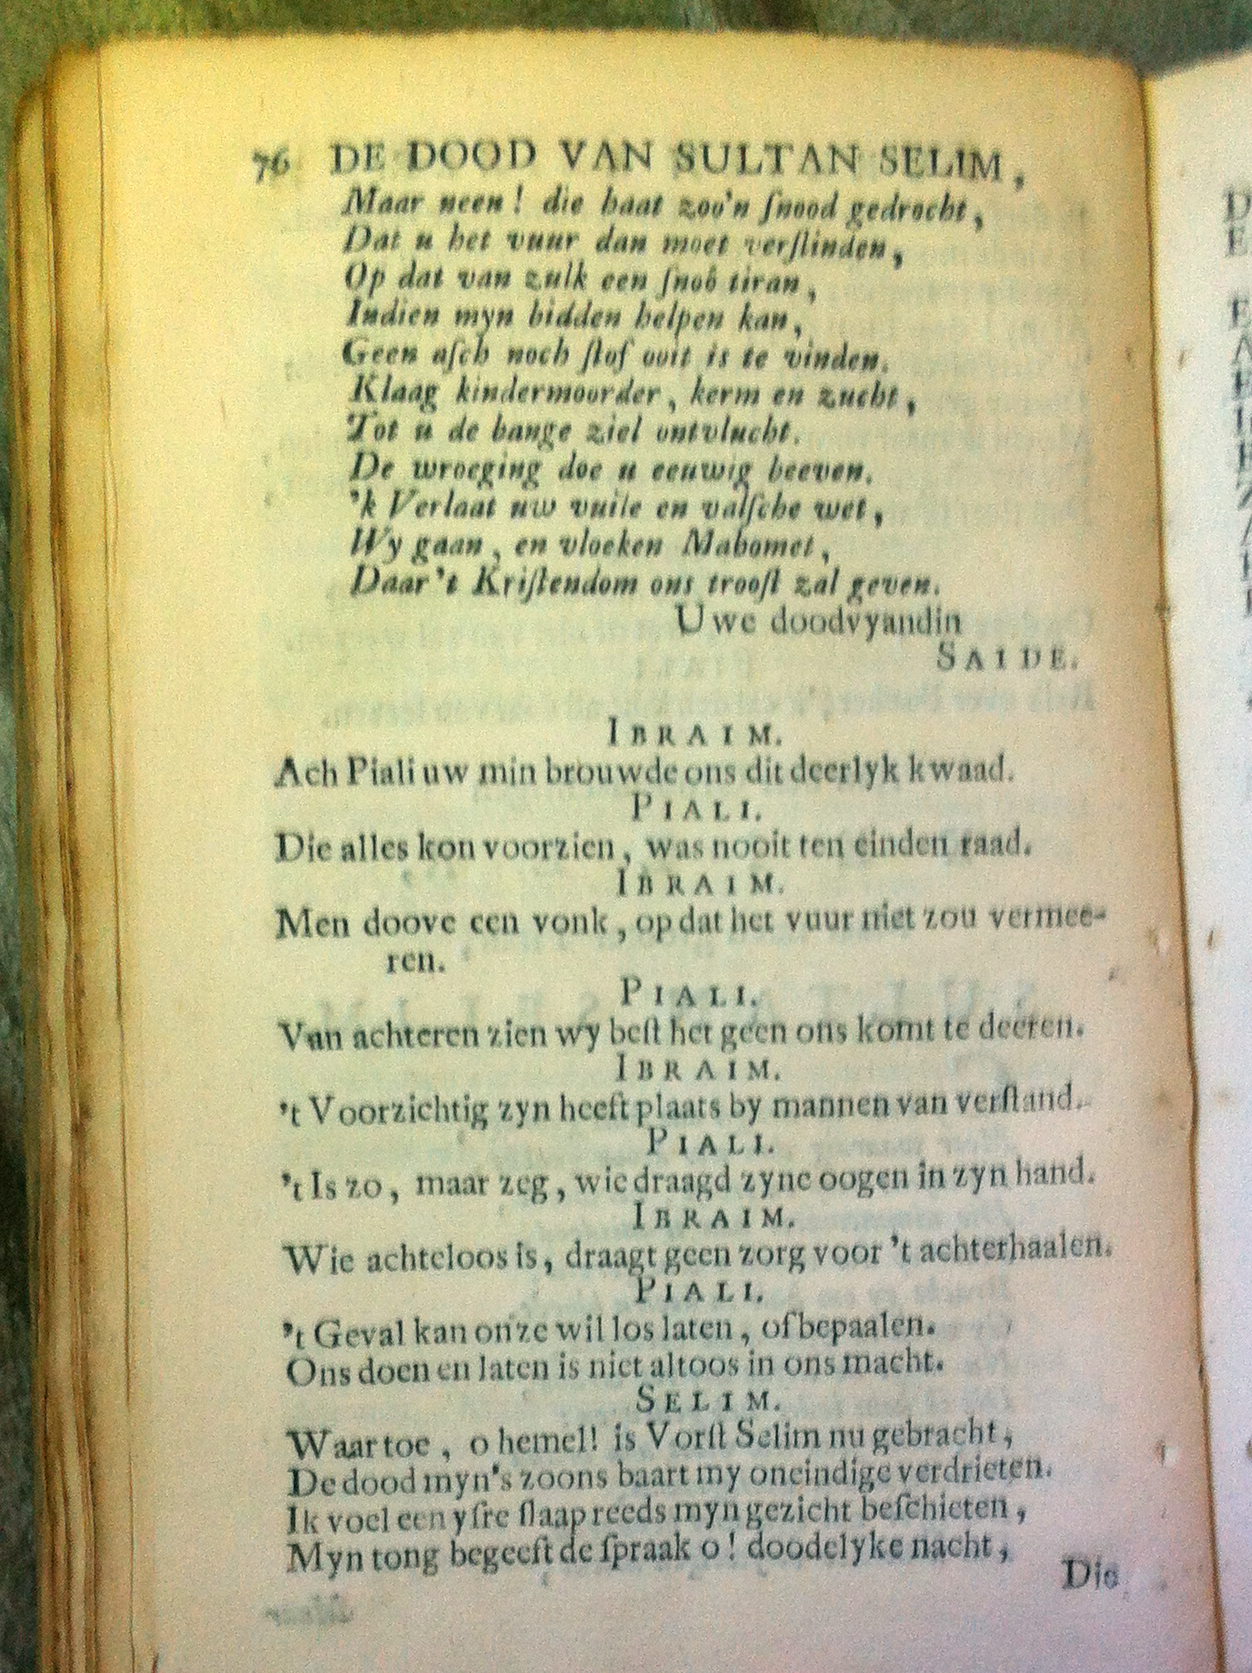 76 DE DOOD VAN SULTAN SELIM,
Maar neen! die haat zoo'n ſnood gedrocht,
Dat u het vuur dan moet verſlinden,
Op dat van zulk een ſnoô tiran,
Indien myn bidden helpen kan,
Geen aſch noch ſtof ooit is te vinden.
Klaag kindermoorder, kerm en zucht,
Tot u de bange ziel ontvlucht.
De wroeging doe u eeuwig beeven.
'k Verlaat uw vuile en valſche wet,
Wy gaan, en vloeken Mahomet,
Daar 't Kriſtendom ons trooſt zal geven.
Uwe doodvyandin
SAIDE.
IBRAIM.
Ach Piali uw min brouwde ons dit deerlyk kwaad.
PIALI.
Die alles kon voorzien, was nooit ten einden raad.
IBRAIM.
Men doove een vonk, op dat het vuur niet zou vermee-
ren.
PIALI.
Van achteren zien wy beſt het geen ons komt te deeren.
IBRAIM.
't Voorzichtig zyn heeft plaats by mannen van verſtand.
PIALI.
't Is zo, maar zeg, wie draagd zyne oogen in zyn hand.
IBRAIM.
Wie achteloos is, draagt geen zorg voor 't achterhaalen.
PIALI.
't Geval kan onze wil los laten, of bepaalen.
Ons doen en laten is niet altoos in ons macht.
SELIM.
Waar toe, o hemel! is Vorſt Selim nu gebracht,
De dood myn's zoons baart my oneindige verdrieten.
Ik voel een yſre ſlaap reeds myn gezicht beſchieten,
Myn tong begeeft de ſpraak o! doodelyke nacht,
Die